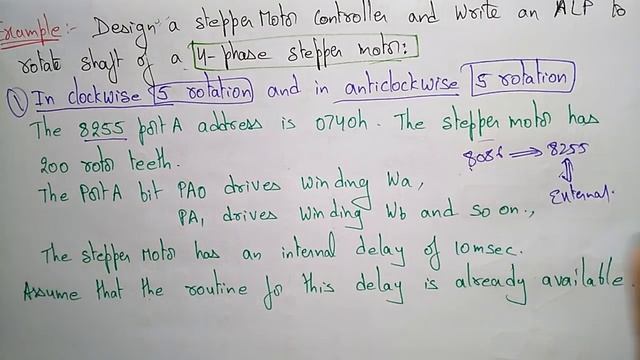 Example:- Design a stepper Motor Controller and Write an ALP to
rotate shaft of a 4-phase stepper motor:
① In clockwise 5 rotation and in anticlockwise 5 rotation
The 8255 port A address is 0740h. The stepper motor has
200 rotor teeth.
8086 ⟹ 8255
The Port A bit PA0 drives winding Wa,
External.
PA1 drives winding Wb and so on.,
The stepper Motor has an internal delay of 10msec.
Assume that the routine for this delay is already available.